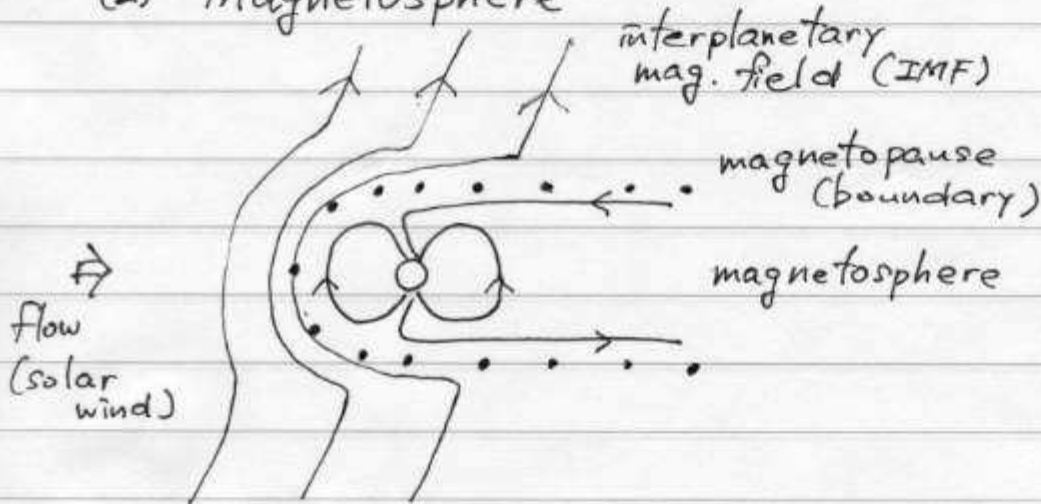 (2) magnetosphere
interplanetary
mag. field (IMF)
magnetopause
(boundary)
magnetosphere
flow
(solar
wind)